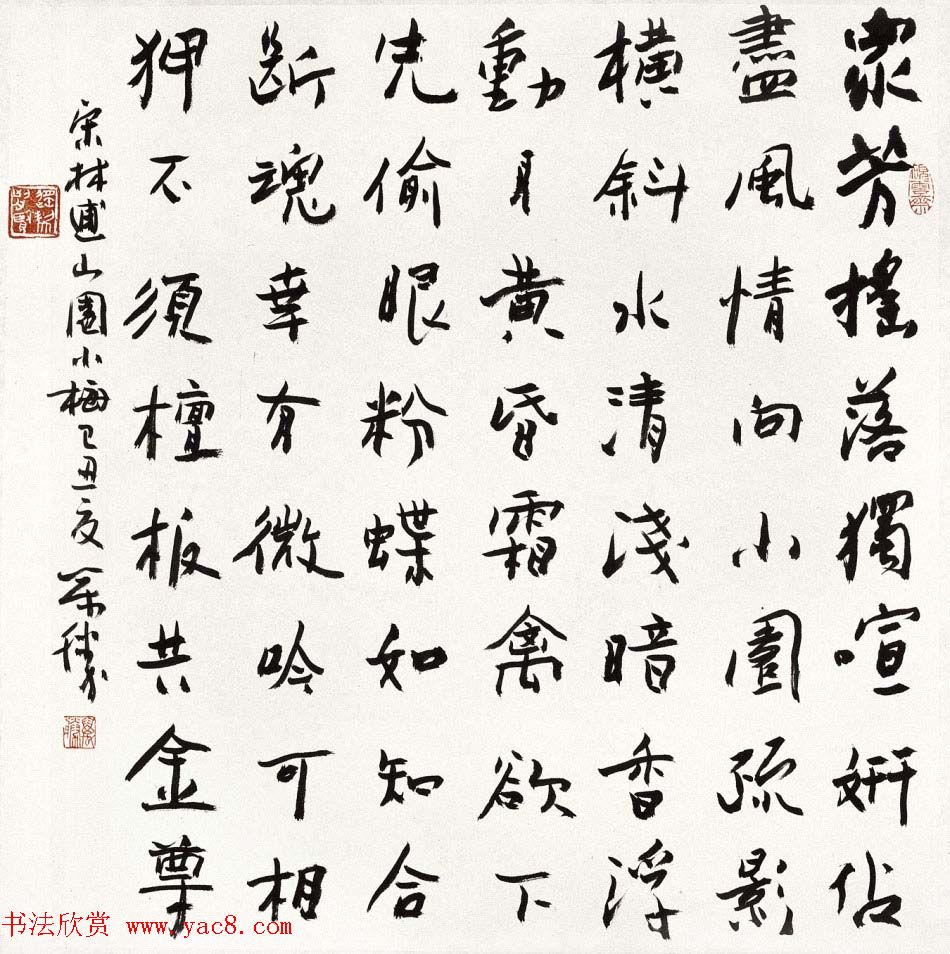 眾芳摇落獨喧妍佔
盡風情向小園疏影
橫斜水清淺暗香浮
動月黃昏霜禽欲下
先偷眼粉蝶如知合
斷魂幸有微吟可相
狎不須檀板共金尊
宋林逋山園小梅己丑夏
书法欣赏 www.yac8.com